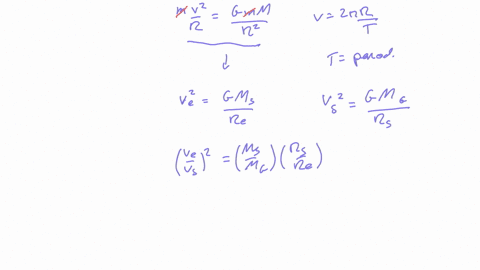 m v²/R = G m M / R²
v = 2πR/T
T = period.
↓
v_e² = G M_s / R_e
v_s² = G M_G / R_s
(v_e/v_s)² = (M_s/M_G)(R_s/R_e)